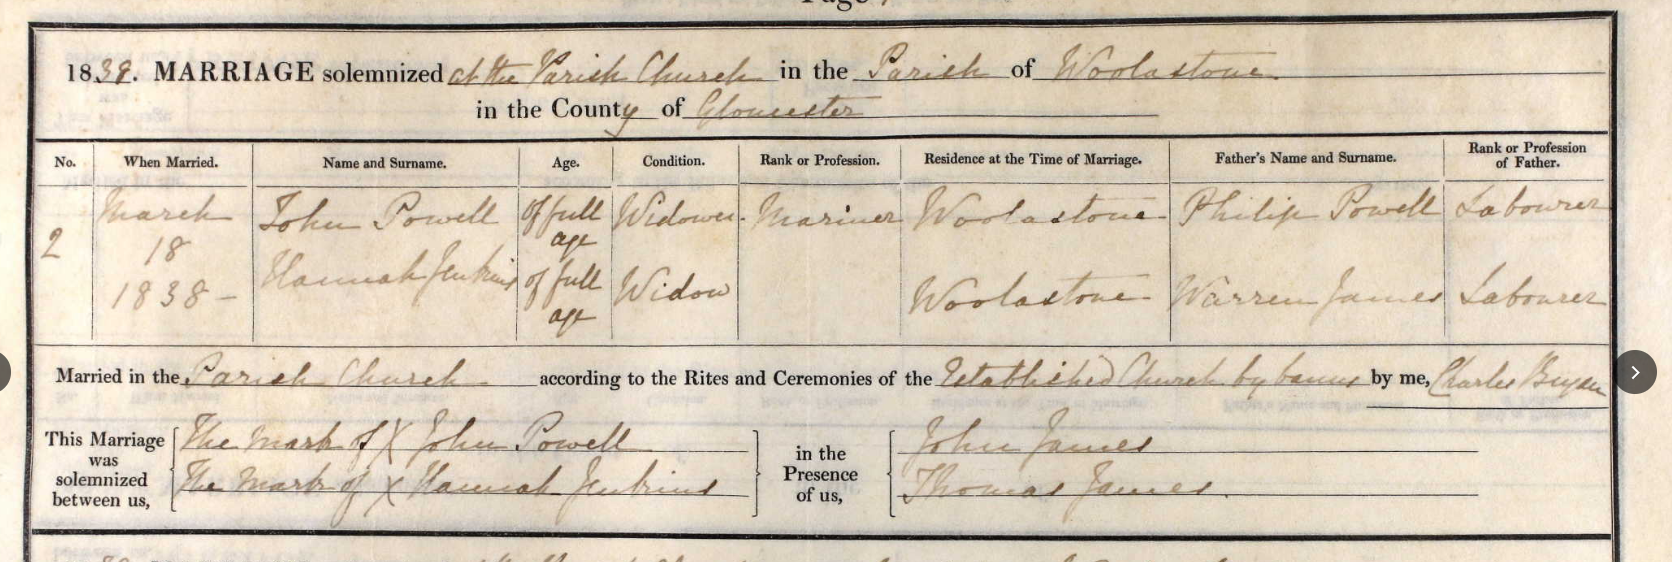 Page
1838. MARRIAGE solemnized at the Parish Church in the Parish of Woolastone
in the County of Gloucester
No. When Married. Name and Surname. Age. Condition. Rank or Profession. Residence at the Time of Marriage. Father's Name and Surname. Rank or Profession of Father.
2 March 18 1838 John Powell Of full age Widower Mariner Woolastone Philip Powell Labourer
Hannah Jenkins of full age Widow Woolastone Warren James Labourer
Married in the Parish Church according to the Rites and Ceremonies of the Established Church by banns by me, Charles Bryan
This Marriage was solemnized between us, The Mark of X John Powell
The Mark of X Hannah Jenkins
in the Presence of us, John James
Thomas James.